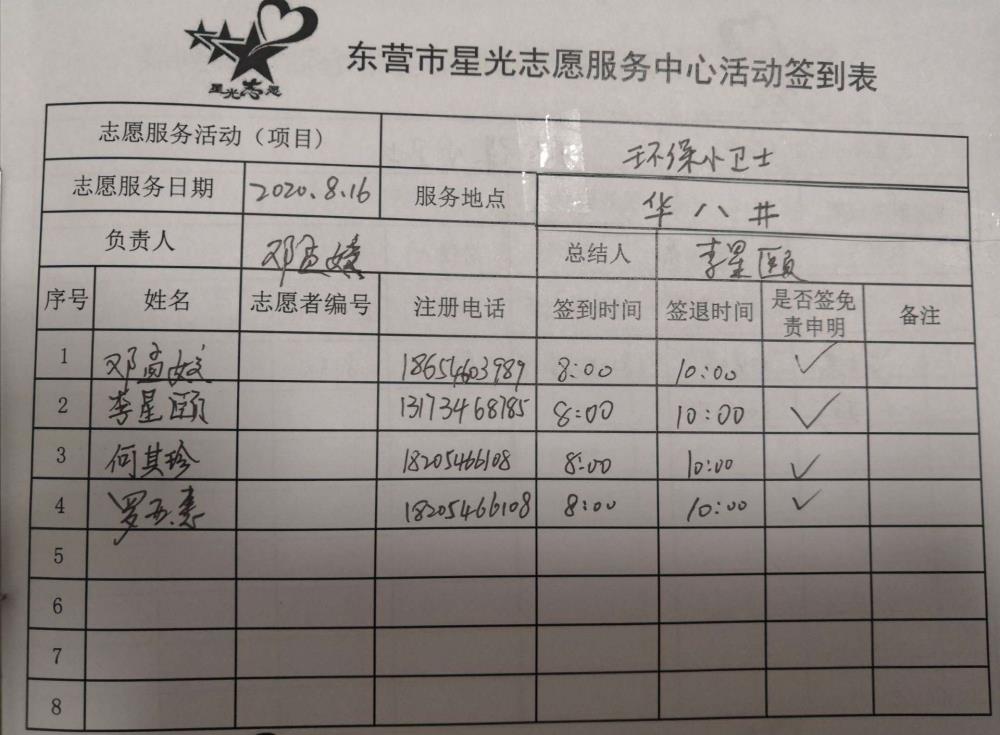 星光志愿
东营市星光志愿服务中心活动签到表
志愿服务活动（项目） 环保小卫士
志愿服务日期 2020.8.16 服务地点 华八井
负责人 邓孟 总结人 李星颐
序号 姓名 志愿者编号 注册电话 签到时间 签退时间 是否签免责申明 备注
1 邓孟 18654603989 8:00 10:00 ✓
2 李星颐 13173468785 8:00 10:00 ✓
3 何其珍 18205466108 8:00 10:00 ✓
4 罗 18205466108 8:00 10:00 ✓
5
6
7
8